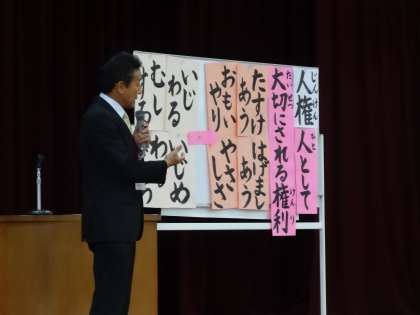 じんけん
人権
ひと
人として
たいせつ
大切にされる権利
けんり
たすけ
あう
はげまし
あう
おもい
やり
やさ
しさ
いじ
わる
いじめ
むし
わる